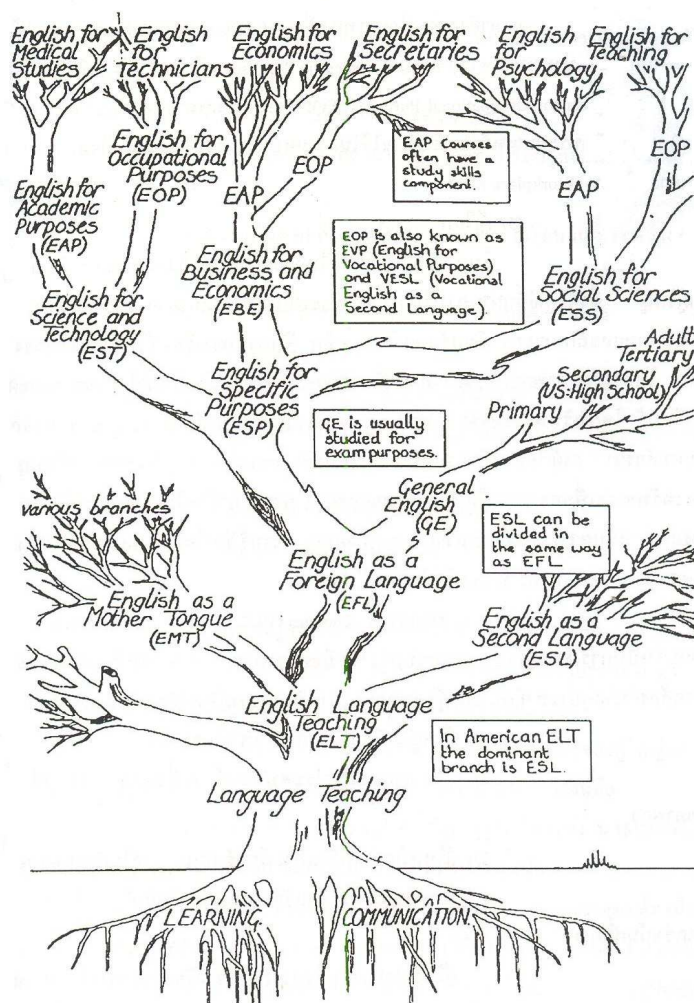 English for
Medical
Studies
English
for
Technicians
English for
Economics
English for
Secretaries
English
for
Psychology
English for
Teaching
English for
Occupational
Purposes
(EOP)
EAP
EOP
EAP Courses
often have a
study skills
component.
EAP
EOP
English for
Academic
Purposes
(EAP)
English for
Business and
Economics
(EBE)
EOP is also known as
EVP (English for
Vocational Purposes)
and VESL (Vocational
English as a
Second Language).
English for
Social Sciences
(ESS)
English for
Science and
Technology
(EST)
English for
Specific
Purposes
(ESP)
Adult
Tertiary
Secondary
(US:High School)
Primary
GE is usually
studied for
exam purposes.
General
English
(GE)
various branches
ESL can be
divided in
the same way
as EFL.
English as a
Foreign Language
(EFL)
English as a
Mother Tongue
(EMT)
English as a
Second Language
(ESL)
English Language
Teaching
(ELT)
In American ELT
the dominant
branch is ESL.
Language Teaching
LEARNING
COMMUNICATION